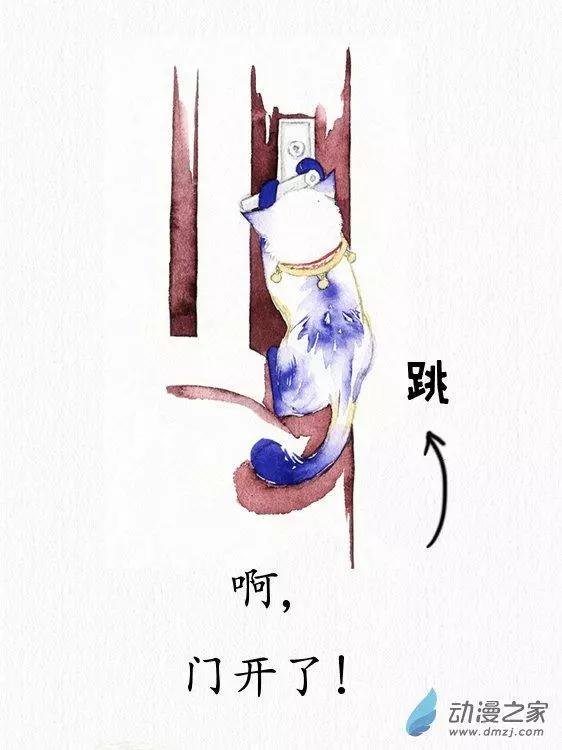 跳
啊，
门开了！
动漫之家
www.dmzj.com